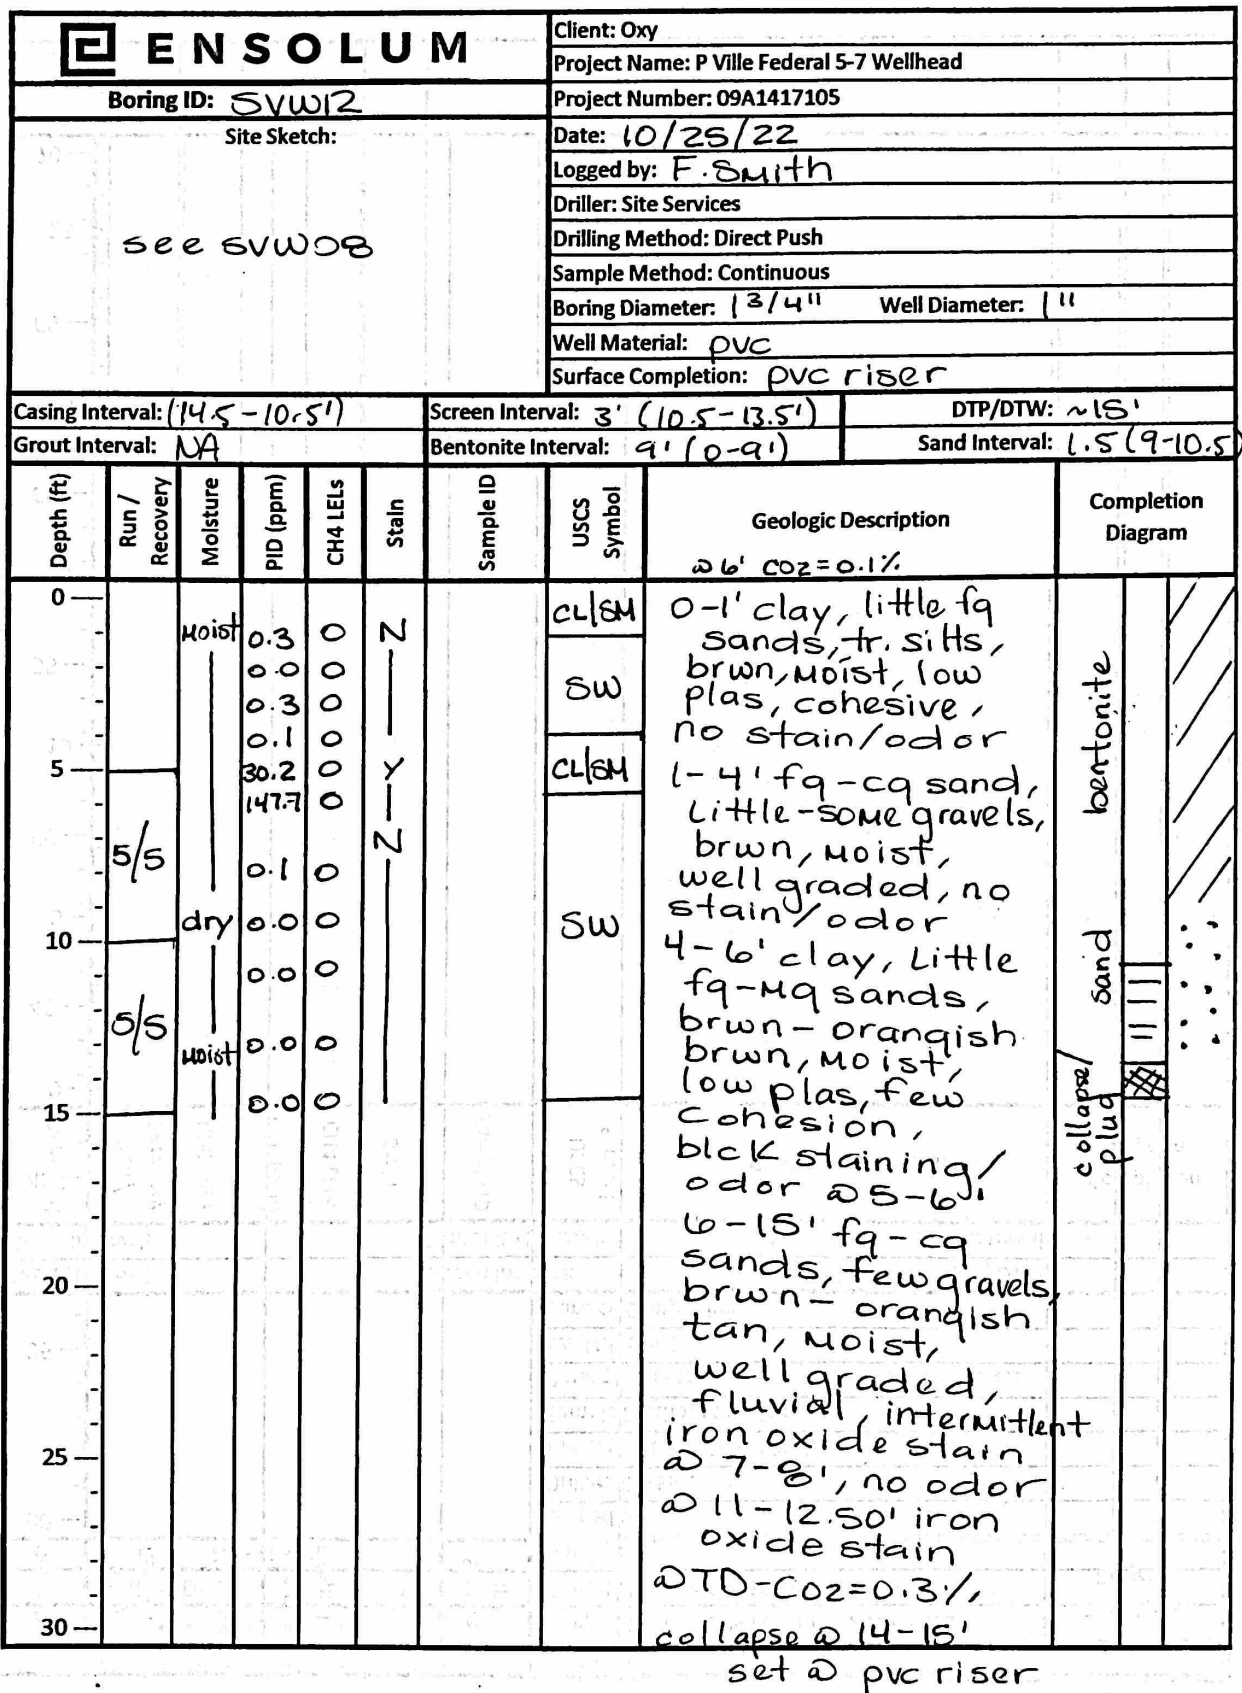 ENSOLUM
Boring ID: SVW12
Site Sketch:
see SVW08
Client: Oxy
Project Name: P Ville Federal 5-7 Wellhead
Project Number: 09A1417105
Date: 10/25/22
Logged by: F. Smith
Driller: Site Services
Drilling Method: Direct Push
Sample Method: Continuous
Boring Diameter: 1 3/4" Well Diameter: 1"
Well Material: PVC
Surface Completion: PVC riser
Casing Interval: (14.5-10.5') Screen Interval: 3' (10.5-13.5') DTP/DTW: ~15'
Grout Interval: NA Bentonite Interval: 9' (0-9') Sand Interval: 1.5 (9-10.5)
Depth (ft) Run / Recovery Moisture PID (ppm) CH4 LELs Stain Sample ID USCS Symbol Geologic Description Completion Diagram
@ 6' CO2 = 0.1%
0
5
10
15
20
25
30
5/5
5/5
Moist
dry
Moist
0.3 0
0.0 0
0.3 0
0.1 0
30.2 0
147.7 0
0.1 0
0.0 0
0.0 0
0.0 0
0.0 0
N
Y
N
CL/SM
SW
CL/SM
SW
0-1' clay, little fg
sands, tr. silts,
brwn, moist, low
plas, cohesive,
no stain/odor
1-4' fg-cg sand,
little-some gravels,
brwn, moist,
well graded, no
stain/odor
4-6' clay, little
fg-mg sands,
brwn - orangish
brwn, moist,
low plas, few
cohesion,
blck staining/
odor @ 5-6'
6-15' fg-cg
sands, few gravels,
brwn - orangish
tan, moist,
well graded,
fluvial, intermittent
iron oxide stain
@ 7-8', no odor
@ 11-12.50' iron
oxide stain
@ TD-CO2=0.3%
collapse @ 14-15'
set @ pvc riser
bentonite
sand
collapse/
plug